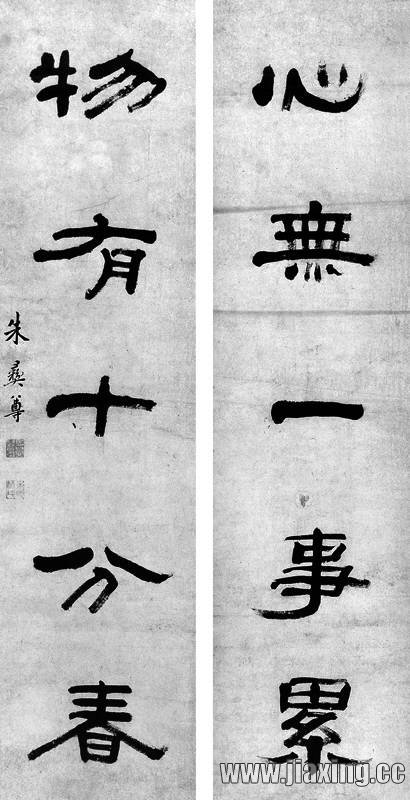 心無一事累
物有十分春
朱彝尊
www.jiaxing.cc